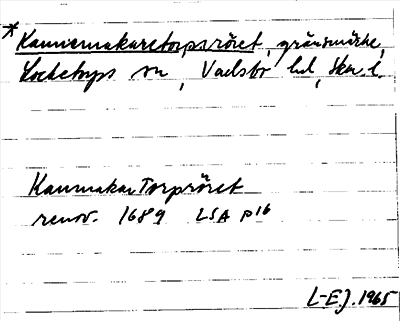 *Kannemakaretorpsröret, gränsmärke,
Locketorps sn, Vadsbo hd, Skar. l.
Kanmakar Torpröret
renov. 1689 LSA P16
L-EJ. 1965